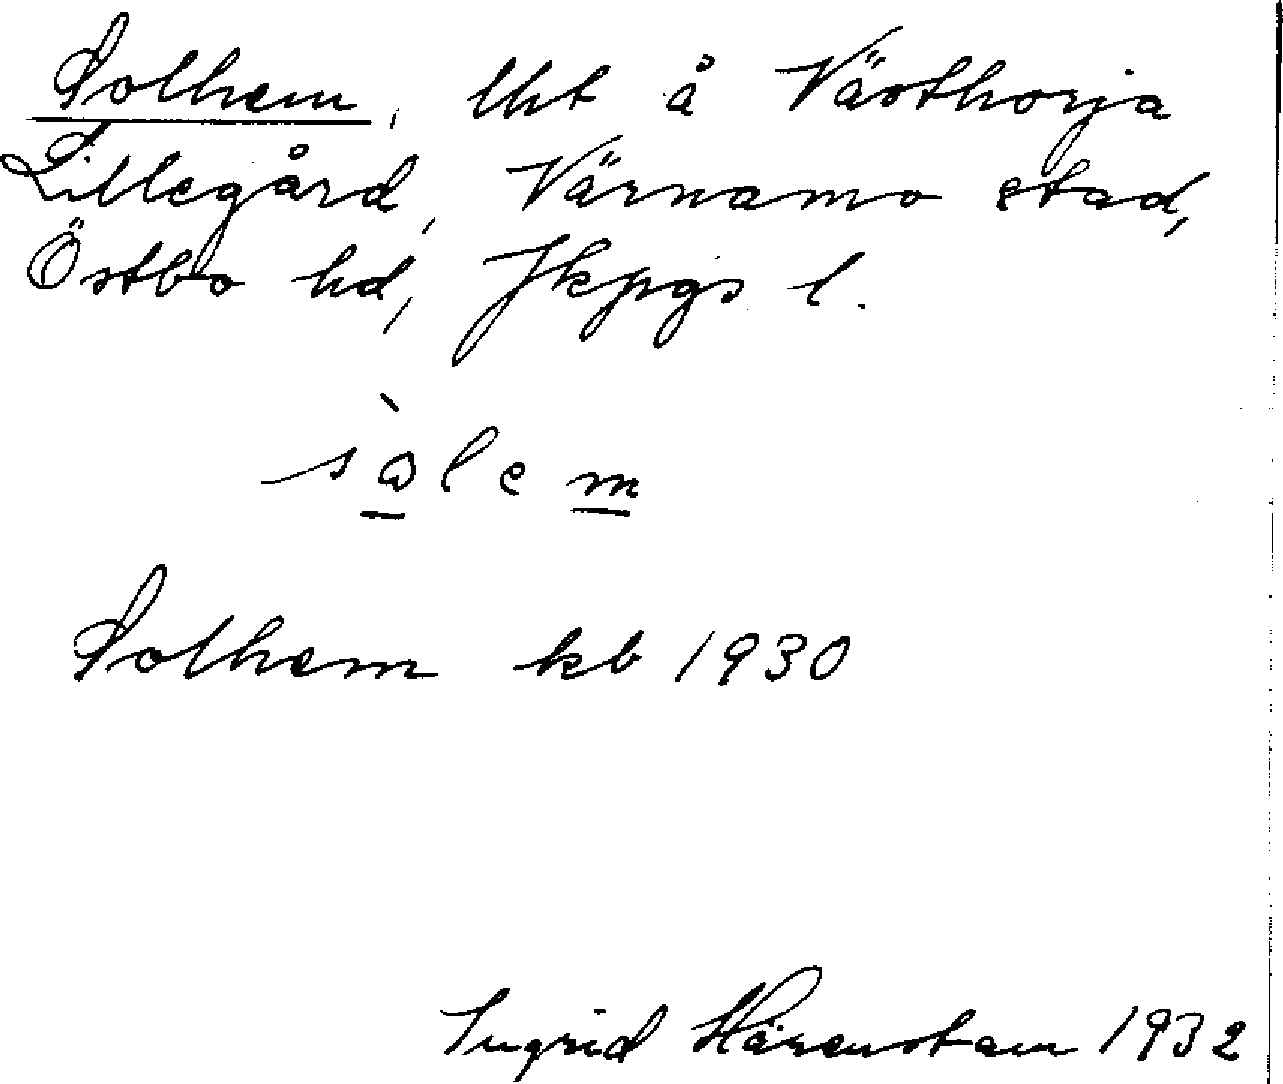 Solhem, lht å Västhorja
Lillegård, Värnamo stad,
Östbo hd, Jkpgs l.
sòlem
Solhem kb 1930
Ingrid Härenstam 1932